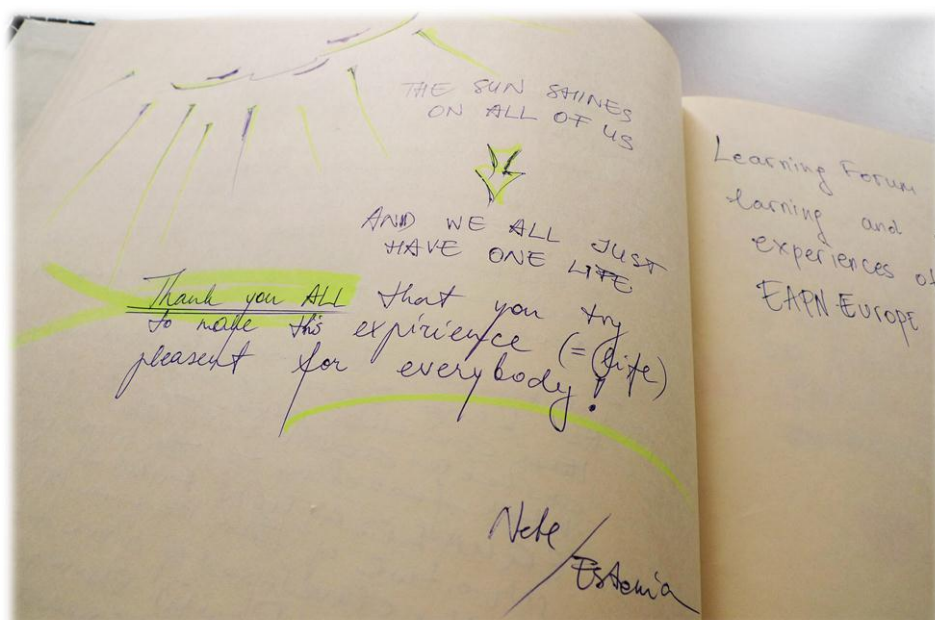 THE SUN SHINES
ON ALL OF US
AND WE ALL JUST
HAVE ONE LIFE
Thank you ALL that you try
to make this expirience (=life)
pleasent for everybody!
Estonia
Learning Forum
larning and
experiences of
EAPN Europe